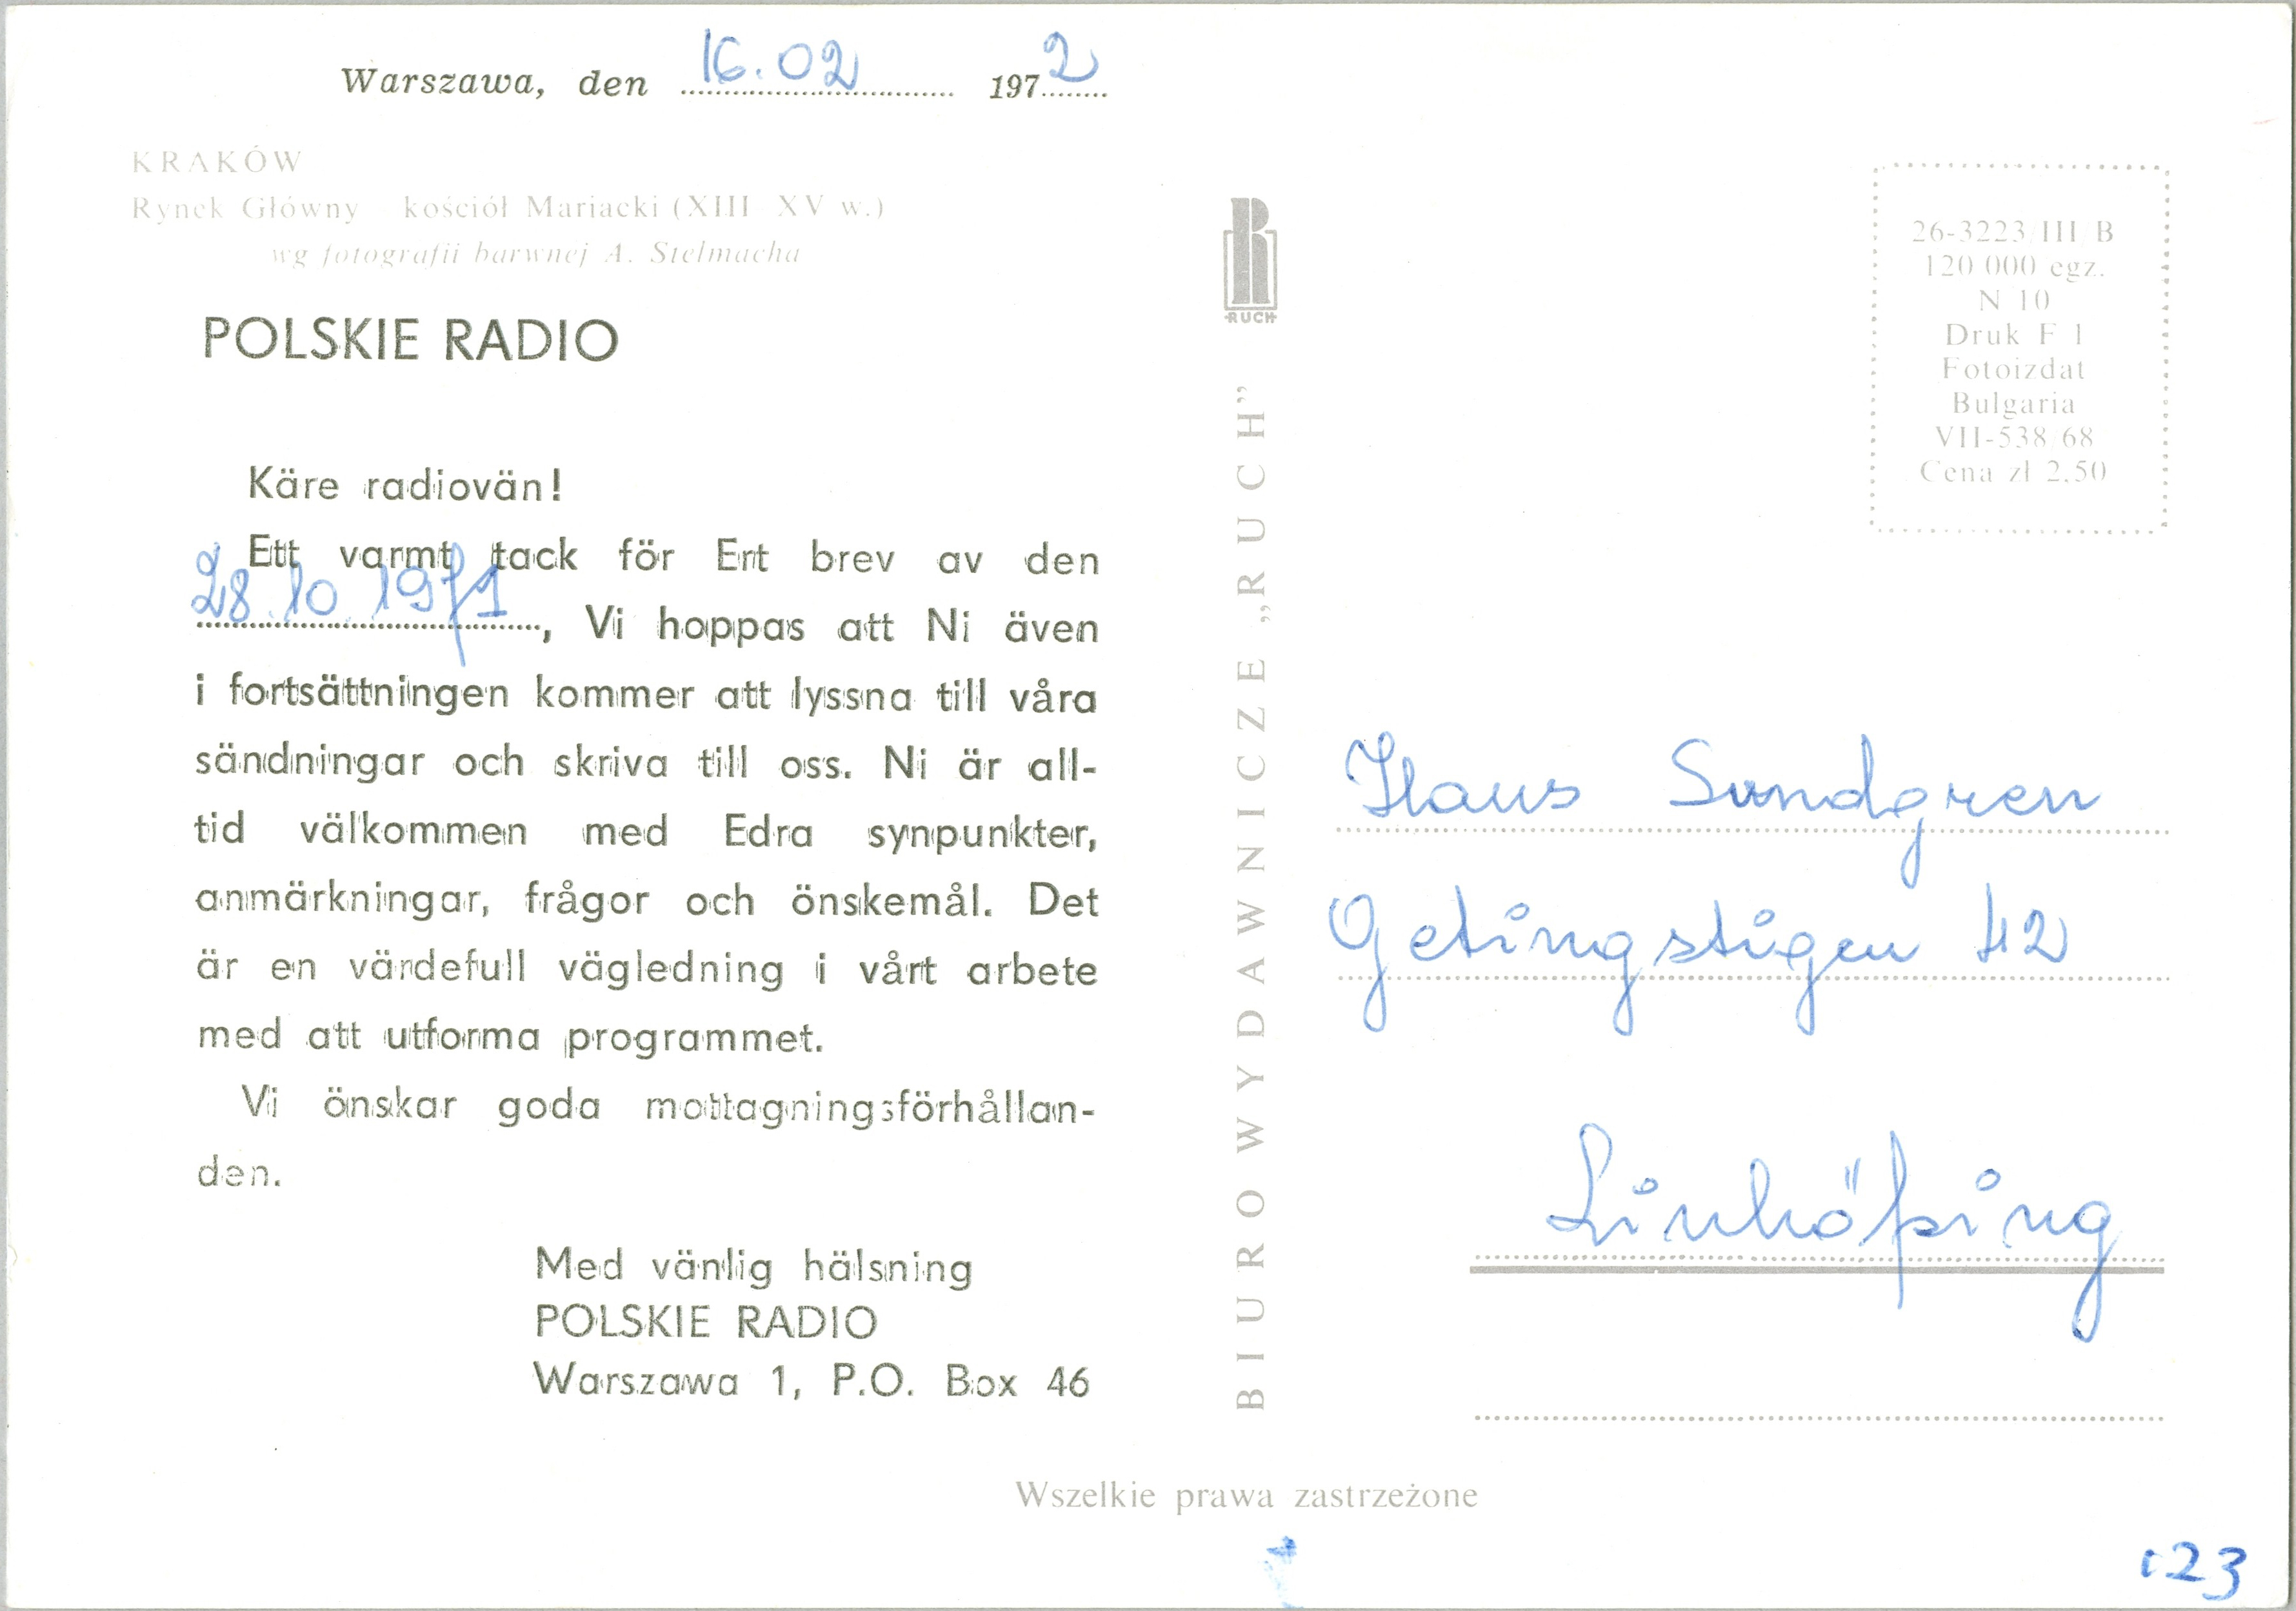 Warszawa, den 16.02 1972
KRAKÓW
Rynek Główny kościół Mariacki (XIII XV w.)
wg fotografii barwnej A. Stelmacha
POLSKIE RADIO
Käre radiovän!
Ett varmt tack för Ert brev av den
28.10.1971, Vi hoppas att Ni även
i fortsättningen kommer att lyssna till våra
sändningar och skriva till oss. Ni är all-
tid välkommen med Edra synpunkter,
anmärkningar, frågor och önskemål. Det
är en värdefull vägledning i vårt arbete
med att utforma programmet.
Vi önskar goda mottagningsförhållan-
den.
Med vänlig hälsning
POLSKIE RADIO
Warszawa 1, P.O. Box 46
RUCH
BIURO WYDAWNICZE „RUCH”
26-3223/III/B
120 000 egz.
N 10
Druk F 1
Fotoizdat
Bulgaria
VII-538/68
Cena zł 2,50
Hans Sundgren
Getingstigen 42
Linköping
Wszelkie prawa zastrzeżone
123